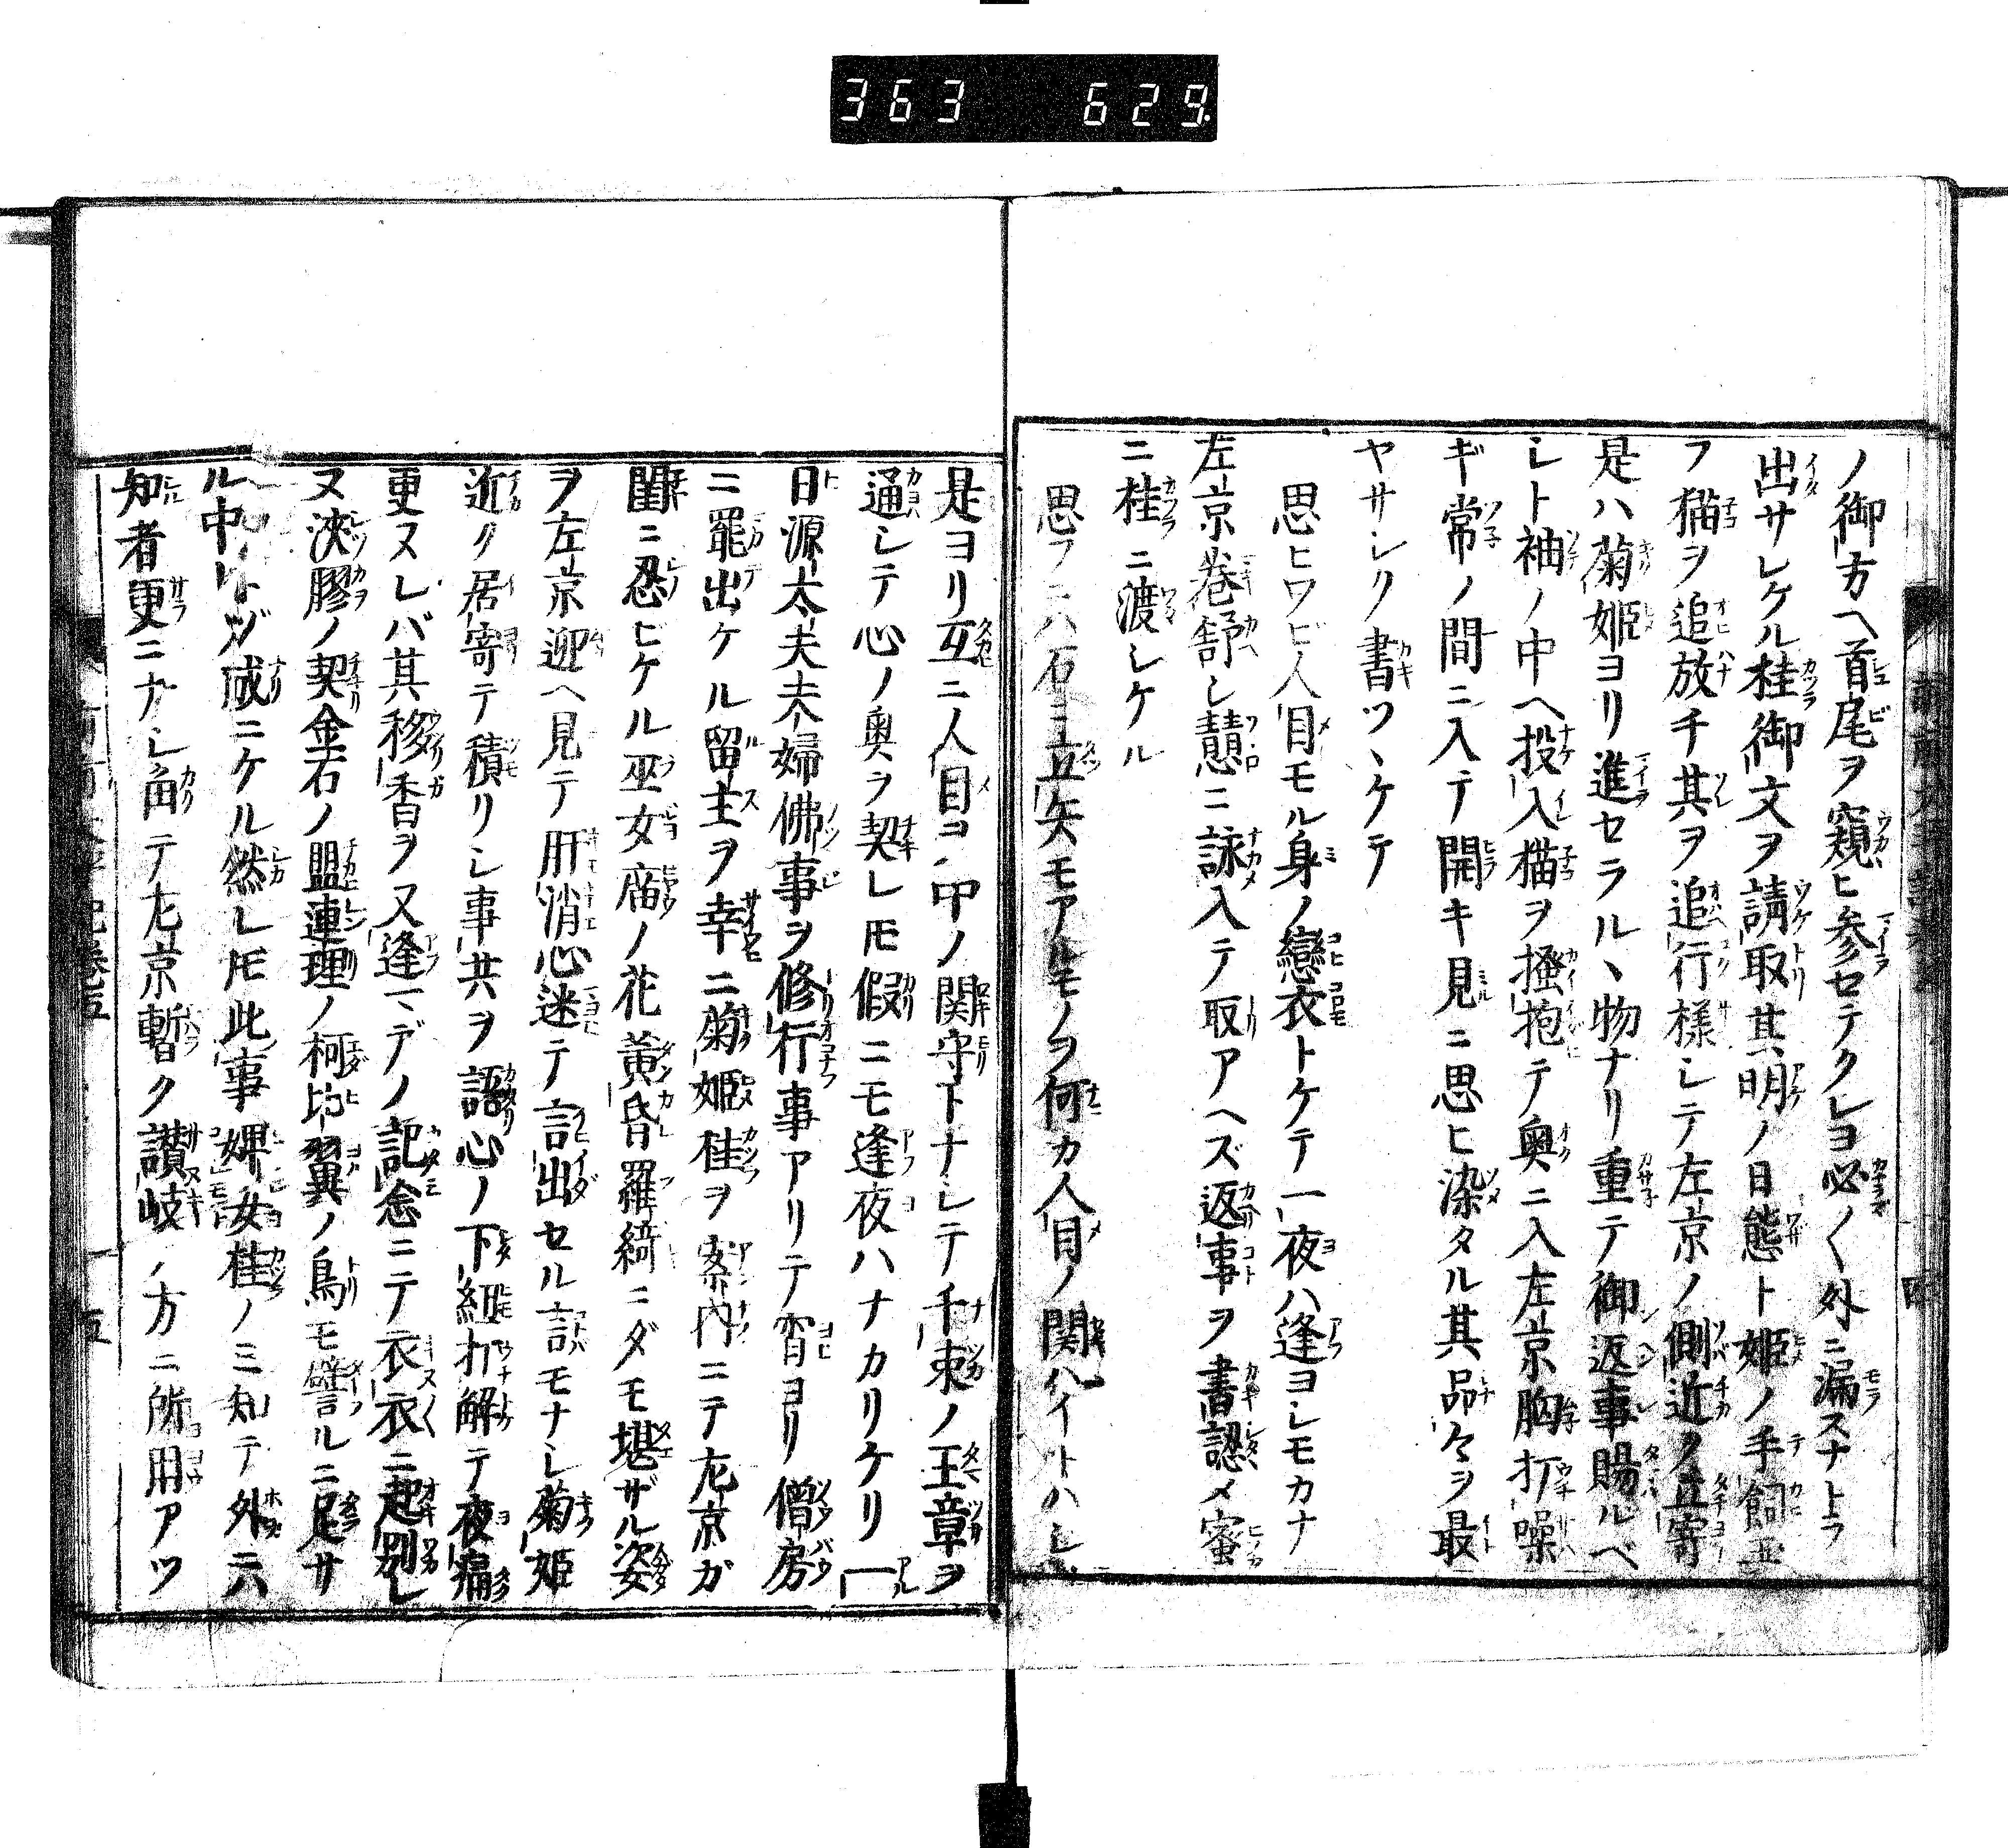 363 629
ノ御方ヘ首尾ヲ窺ヒ参セテクレヨ必〱外ニ漏スナト
出サレケル桂御文ヲ請取其明ノ日態ト姫ノ手飼
フ猫ヲ追放チ其ヲ追行様シテ左京ノ側近ク立寄
是ハ菊姫ヨリ進セラルヽ物ナリ重テ御返事賜ルベ
シト袖ノ中ヘ投入猫ヲ掻抱テ奥ニ入左京胸打噪
ギ常ノ間ニ入テ開キ見ニ思ヒ染タル其品々ヲ最
ヤサシク書ツヽケテ
思ヒワビ人目モル身ノ戀衣トケテ一夜ハ逢ヨシモカナ
左京巻舒シ懐ニ詠入テ取アヘズ返事ヲ書認メ蜜
ニ桂ニ渡シケル
思フニハ石ニ立矢モアルモノヲ何カ人目ノ関ハイトハン
是ヨリ互ニ人目ヨ中ノ関守トナシテ千束ノ玉章ヲ
通シテ心ノ奥ヲ契レ𪜈假ニモ逢夜ハナカリケリ一
日源太夫夫婦佛事ヲ修行事アリテ宵ヨリ僧房
ニ罷出ケル留主ヲ幸ニ菊姫桂ヲ案内ニテ左京ガ
閨ニ忍ビケル巫女廟ノ花黄昏羅綺ニダモ堪ザル姿
ヲ左京迎ヘ見テ肝消心迷テ言出セル言モナシ菊姫
近ク居寄テ積リシ事共ヲ語心ノ下紐打解テ夜痛
更ヌレバ其移香ヲ又逢マデノ記念ニテ衣衣ニ起別レ
ヌ浹膠ノ契金石ノ盟連理ノ柯比翼ノ鳥モ譬ルニ足サ
ル中トゾ成ニケル然レ𪜈此事婢女桂ノミ知テ外ニ
知者更ニナシ角テ左京暫ク讃岐ノ方ニ所用アツ